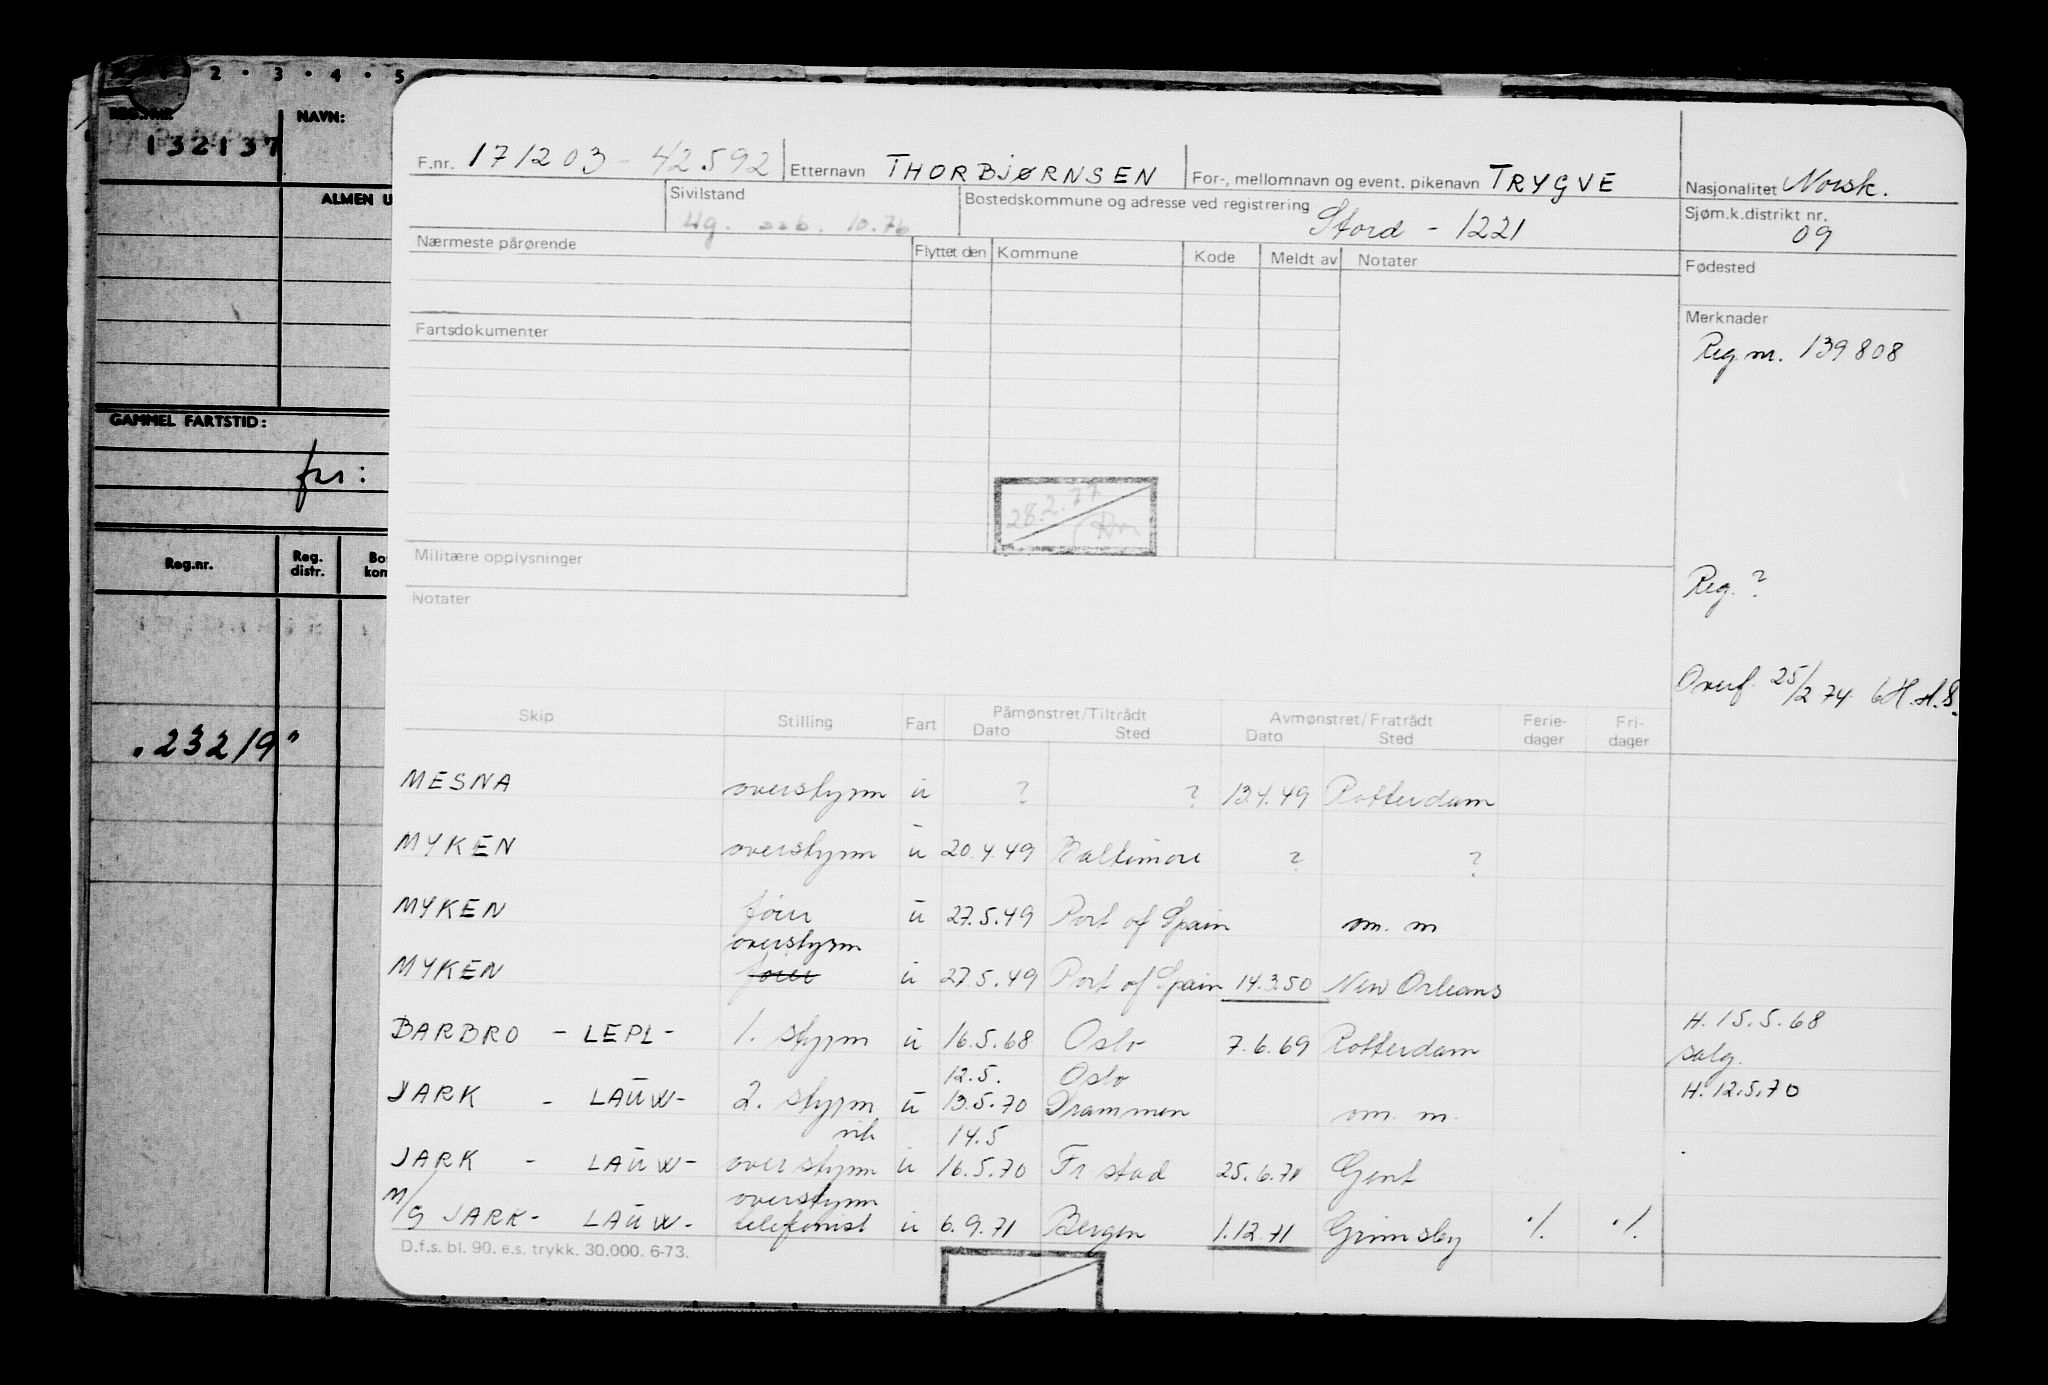 2 · 3 · 4 · 5
REG.NR. NAVN:
132137
ALMEN U
GAMMEL FARTSTID:
frs:
Reg.nr. Reg. distr. Bo kon
"23219"
F.nr. 171203 - 42592 Etternavn THORBJØRNSEN For-, mellomnavn og event. pikenavn TRYGVE Nasjonalitet Norsk.
Sivilstand Ug. 10.76 Bostedskommune og adresse ved registrering Stord - 1221 Sjøm.k.distrikt nr. 09
Nærmeste pårørende Flyttet den Kommune Kode Meldt av Notater Fødested
Fartsdokumenter Merknader
Reg nr. 139808
28.2.77
Rm
Militære opplysninger
Reg. ?
Notater
Overf. 25/2.74. H.S.
Skip Stilling Fart Påmønstret/Tiltrådt Avmønstret/Fratrådt Ferie- Fri-
Dato Sted Dato Sted dager dager
MESNA overstyrm u ? ? 13.4.49 Rotterdam
MYKEN overstyrm u 20.4.49 Baltimore ? ?
MYKEN fører u 27.5.49 Port of Spain om. m
overstyrm
MYKEN fører u 27.5.49 Port of Spain 14.3.50 New Orleans
BARBRO - LEPL - 1. styrm u 16.5.68 Oslo 7.6.69 Rotterdam H. 15.5.68 salg.
12.5. Oslo
JARK - LAUW - 2. styrm u 13.5.70 Drammen om. m. H. 12.5.70
vik 14.5
JARK - LAUW - overstyrm u 16.5.70 Fr stad 25.6.71 Gent
overstyrm
M/S JARK - LAUW - telefonist u 6.9.71 Bergen 1.12.71 Grimsby ./. ./.
D.f.s. bl. 90. e.s. trykk. 30.000. 6-73.